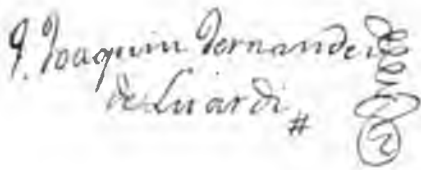 J. Joaquin Fernandez
de Lizardi
#